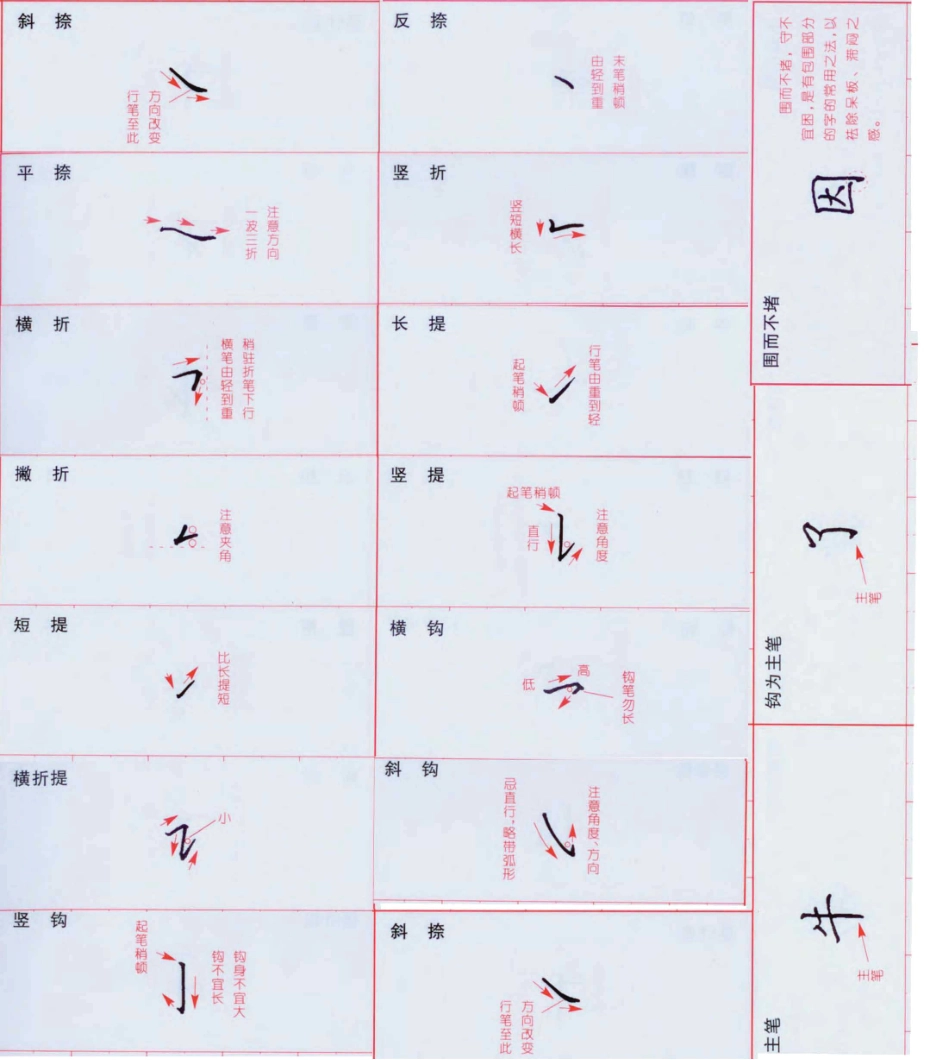 斜捺
行笔至此
方向改变
反捺
由轻到重
末笔稍顿
平捺
一波三折
注意方向
竖折
竖短横长
横折
横笔由轻到重
稍驻折笔下行
长提
起笔稍顿
行笔由重到轻
撇折
注意夹角
竖提
起笔稍顿
直行
注意角度
短提
比长提短
横钩
低
高
钩笔勿长
横折提
小
斜钩
忌直行,略带弧形
注意角度、方向
竖钩
起笔稍顿
钩不宜长
钩身不宜大
斜捺
行笔至此
方向改变
围而不堵
因
围而不堵，守不
宜困，是有包围部分
的字的常用之法，以
祛除呆板、滞闷之
感。
钩为主笔
了
主笔
主笔
牛
主笔